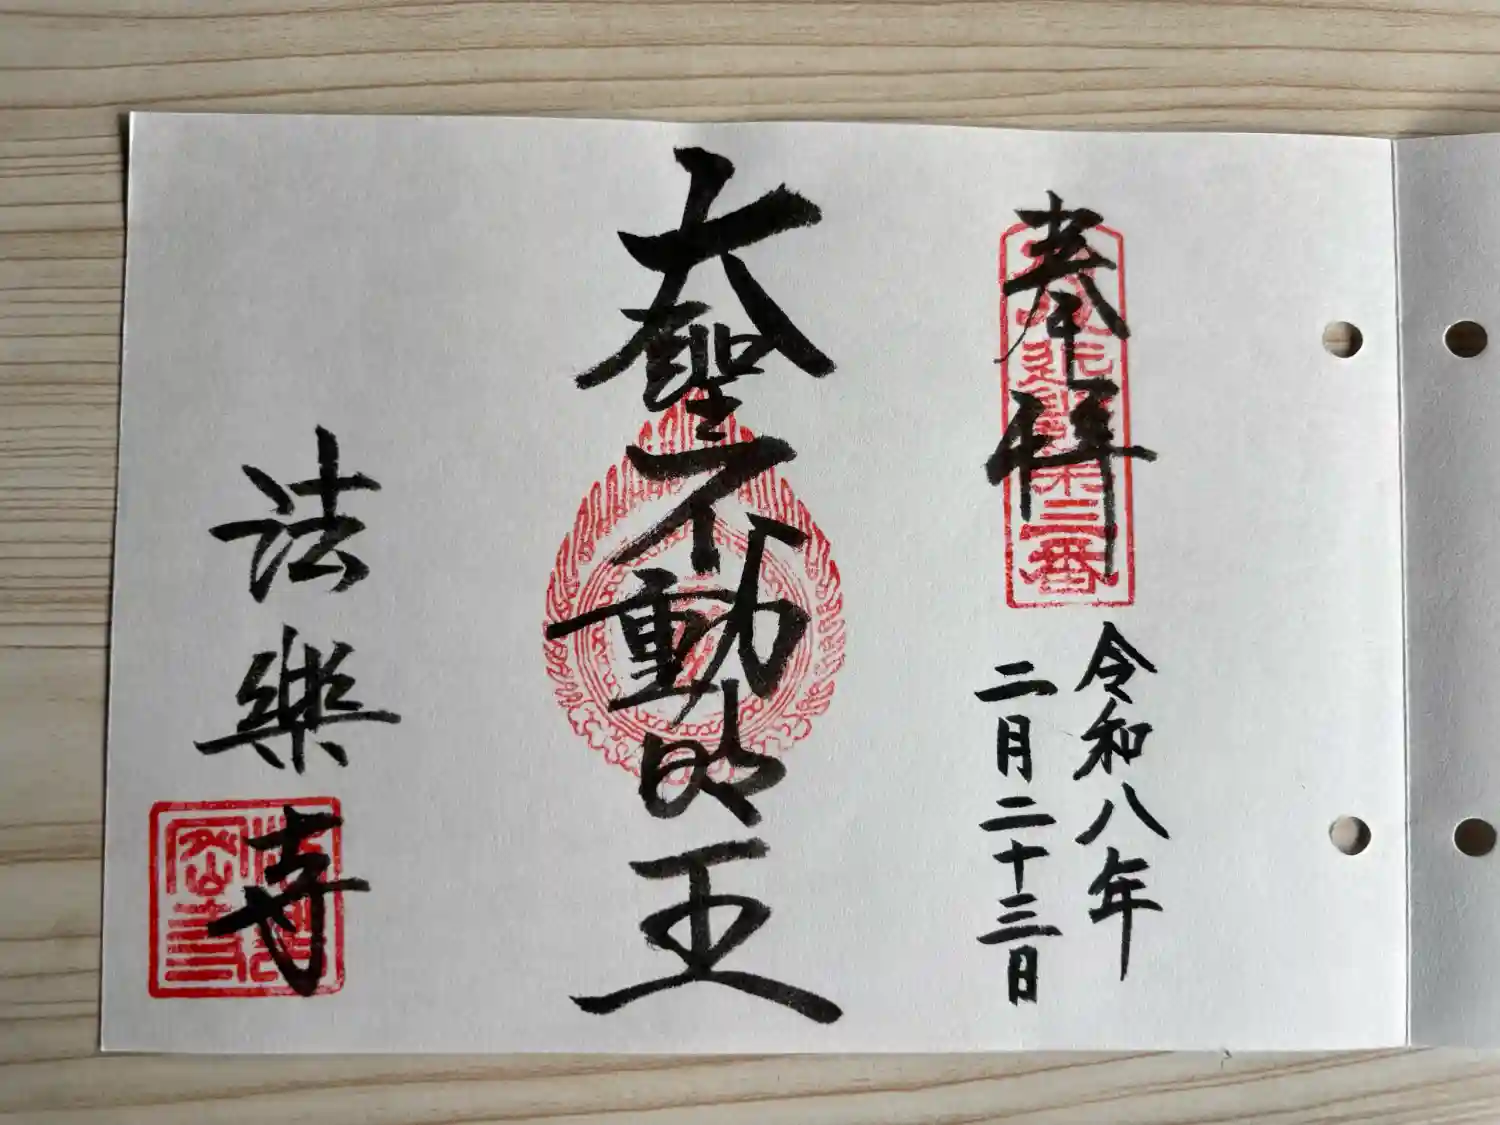 奉拝
令和八年
二月二十三日
大聖不動明王
法樂寺